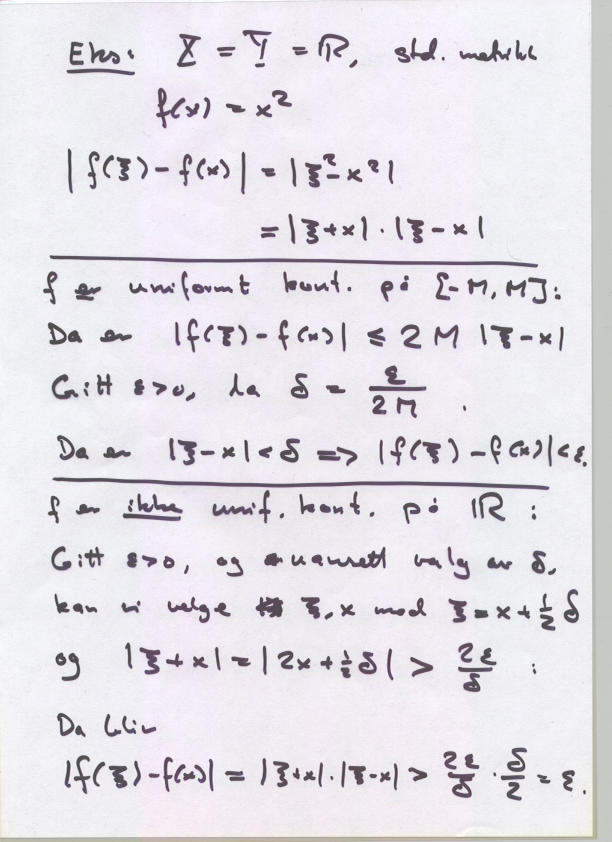 Eks: X = Y = ℝ, std. metrikk
f(x) = x²
|f(ξ) - f(x)| = |ξ² - x²|
= |ξ + x| · |ξ - x|
f er uniformt kont. på [-M, M]:
Da er |f(ξ) - f(x)| ≤ 2M |ξ - x|
Gitt ε>0, la δ = ε/2M .
Da er |ξ - x| < δ => |f(ξ) - f(x)| < ε.
f er ikke unif. kont. på ℝ :
Gitt ε>0, og uansett valg av δ,
kan vi velge ξ, x med ξ = x + ½ δ
og |ξ + x| = |2x + ½ δ| > 2ε/δ :
Da blir
|f(ξ) - f(x)| = |ξ + x| · |ξ - x| > 2ε/δ · δ/2 = ε.